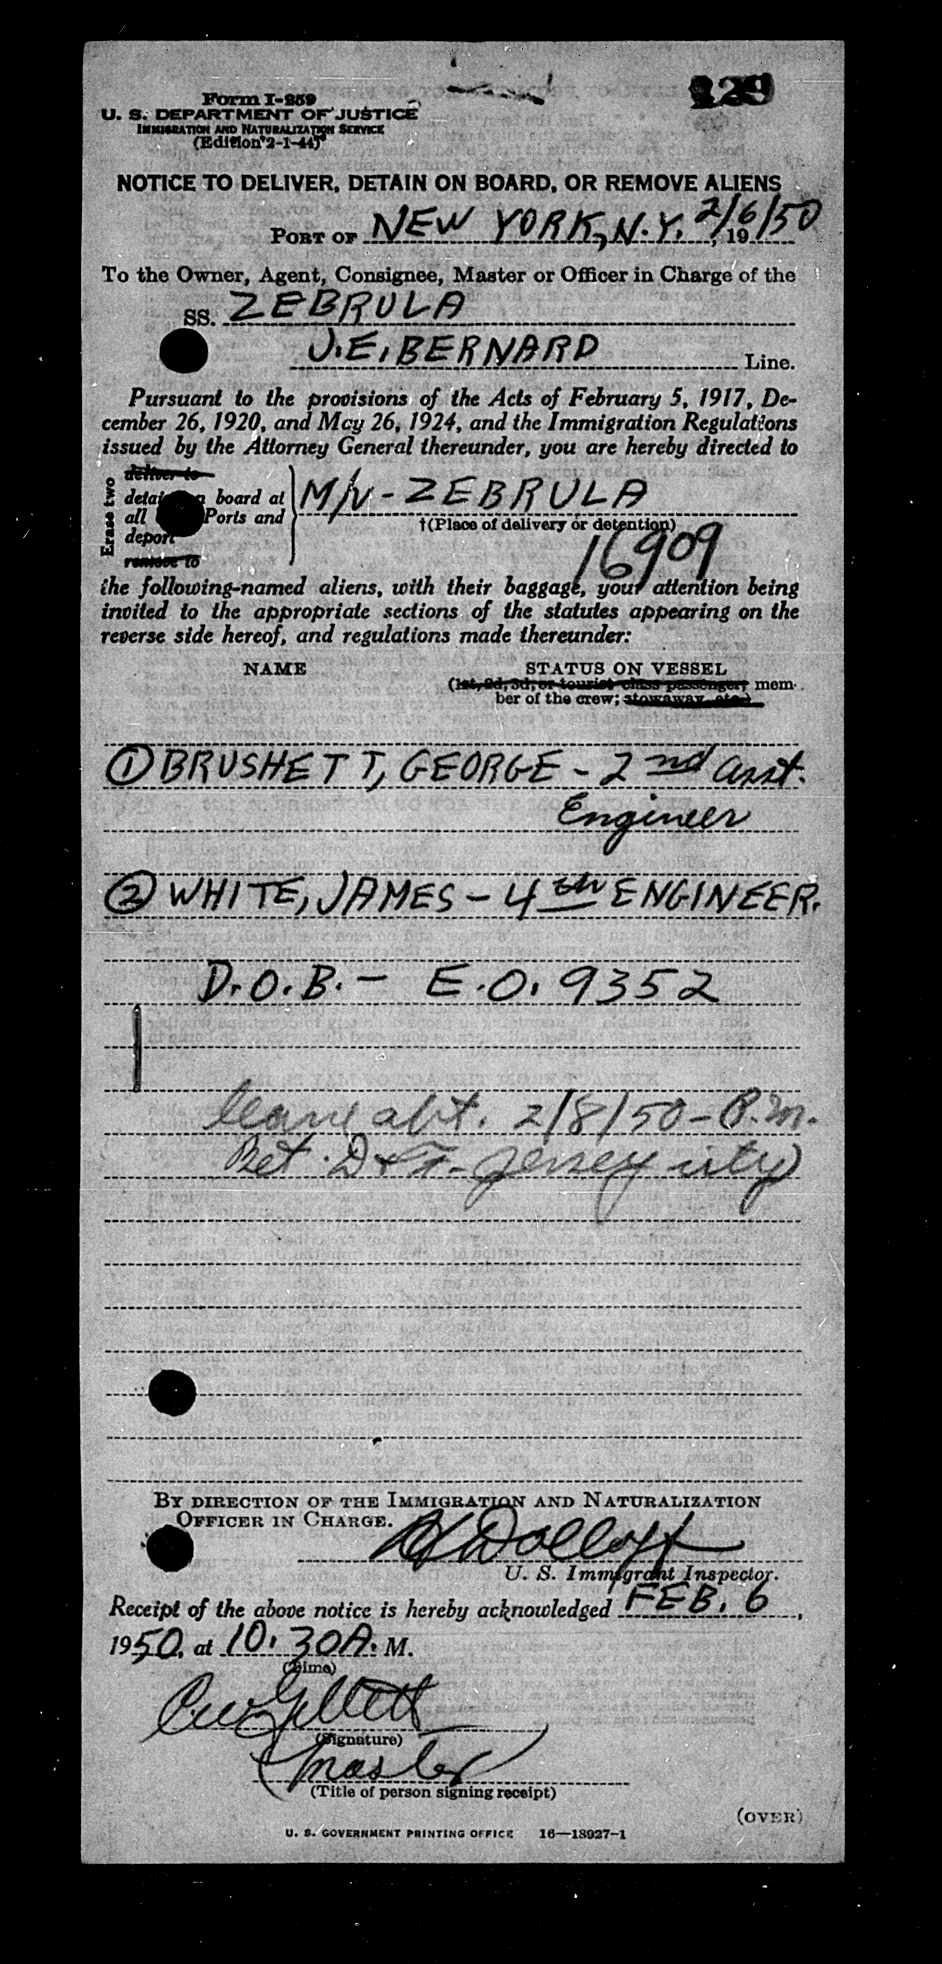 129
Form I-259
U. S. DEPARTMENT OF JUSTICE
IMMIGRATION AND NATURALIZATION SERVICE
(Edition 2-1-44)
NOTICE TO DELIVER, DETAIN ON BOARD, OR REMOVE ALIENS
PORT OF NEW YORK, N.Y. 2/6/50, 19
To the Owner, Agent, Consignee, Master or Officer in Charge of the
SS. ZEBRULA
J.E. BERNARD Line.
Pursuant to the provisions of the Acts of February 5, 1917, De-
cember 26, 1920, and May 26, 1924, and the Immigration Regulations
issued by the Attorney General thereunder, you are hereby directed to
Erase two
deliver to
board at
all Ports and
deport
remove to
M/V - ZEBRULA
†(Place of delivery or detention)
16909
the following-named aliens, with their baggage, your attention being
invited to the appropriate sections of the statutes appearing on the
reverse side hereof, and regulations made thereunder:
NAME STATUS ON VESSEL
(1st, 2d, 3d, or tourist class passenger, mem-
ber of the crew; stowaway, etc.)
① BRUSHETT, GEORGE - 2nd Asst.
Engineer
② WHITE, JAMES - 4th ENGINEER.
D.O.B. - E.O. 9352
Leave abt. 2/8/50 - P.M.
Bet. D & F - Jersey city
BY DIRECTION OF THE IMMIGRATION AND NATURALIZATION
OFFICER IN CHARGE.
Dolloff
U. S. Immigrant Inspector.
Receipt of the above notice is hereby acknowledged FEB. 6,
1950, at 10.30 A. M.
(Time)
Gillett
(Signature)
Master
(Title of person signing receipt)
(OVER)
U. S. GOVERNMENT PRINTING OFFICE 16—18927-1